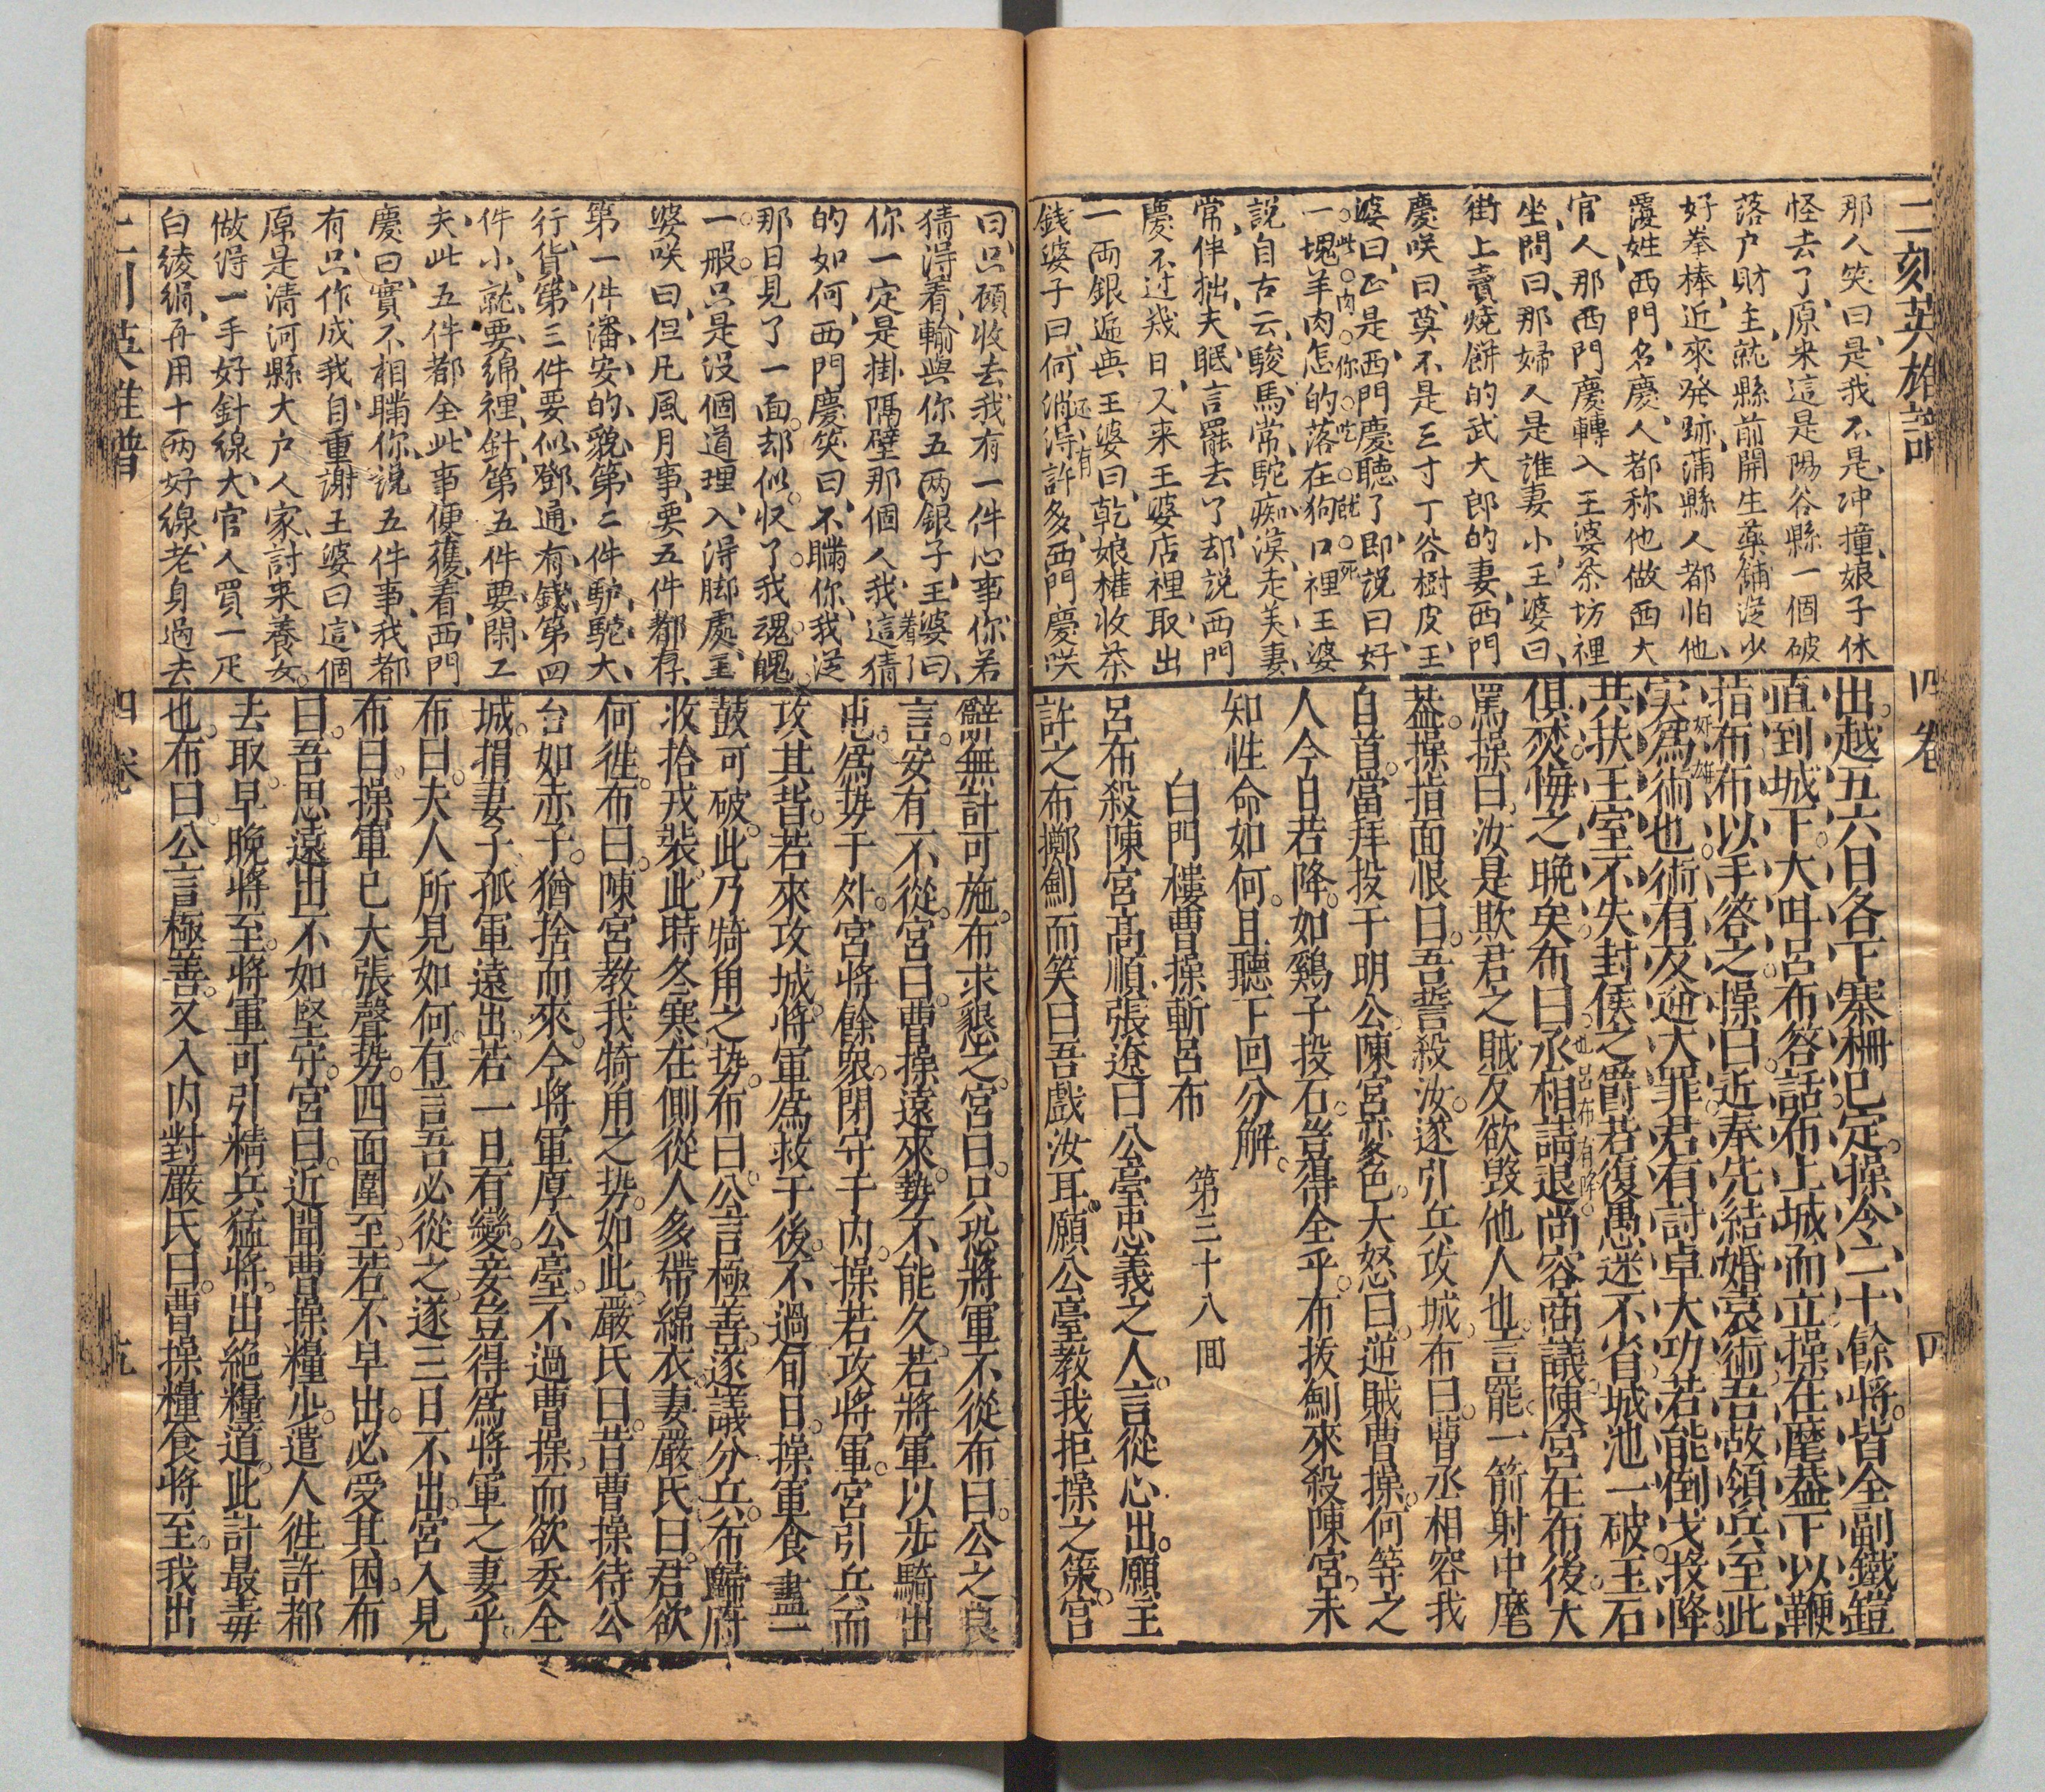 二刻英雄譜
四卷
四
那人笑曰是我不是冲撞娘子休
怪去了原来這是陽谷縣一個破
落户財主就縣前開生藥舖從少
好拳棒近來發跡蒲縣人都怕他
覆姓西門名慶人都称他做西大
官人那西門慶轉入王婆茶坊裡
坐問曰那婦人是誰妻小王婆曰
街上賣燒餅的武大郎的妻西門
慶咲曰莫不是三寸丁谷樹皮王
婆曰正是西門慶聽了即說曰好
一塊羊肉怎的落在狗口裡王婆
此肉你吃就死
說自古云駿馬常駝痴漢走美妻
常伴拙夫眠言罷去了却說西門
慶不过幾日又来王婆店裡取出
一両銀逓與王婆曰乾娘權收茶
还有
錢婆子曰何消得許多西門慶咲
出越五六日各下寨柵已定操令二十餘將皆全副鐵鎧
直到城下大叫呂布答話布上城而立操在麾葢下以鞭
指布布以手答之操曰近奉先結婚袁術吾故領兵至此
奸雄
实爲術也術有反逆大罪君有討卓大功若能倒戈投降
共扶王室不失封侯之爵若復愚迷不省城池一破玉石
俱焚悔之晚矣布曰丞相請退尚容商議陳宮在布後大
也呂布有降
罵操曰汝是欺君之賊反欲毀他人也言罷一箭射中麾
葢操指面恨曰吾誓殺汝遂引兵攻城布曰曹丞相容我
自首當拜投于明公陳宮变色大怒曰逆賊曹操何等之
人今日若降如鷄子投石豈得全乎布拔劍來殺陳宮未
知性命如何且聽下回分解
白門樓曹操斬呂布
第三十八囬
呂布殺陳宮高順張遼曰公臺忠義之人言從心出願主
許之布擲劍而笑曰吾戲汝耳願公臺教我拒操之策宮
曰只顧收去我有一件心事你若
猜淂着輸與你五两銀子王婆曰
你一定是掛隔壁那個人我這猜
着
的如何西門慶笑曰不瞞你我従
那日見了一面却似收了我魂魄
一般只是没個道理入淂脚處王
婆咲曰但凡風月事要五件都存
第一件潘安的貌第二件馿駝大
行貨第三件要似鄧通有錢第四
件小就要綿裡針第五件要閑工
夫此五件都全此事便獲着西門
慶曰實不相瞞你說五件事我都
有只作成我自重謝王婆曰這個
原是清河縣大户人家討来養女
做淂一手好針線大官人買一疋
白綾絹再用十两好線老身過去
辭無計可施布求懇之宮曰只恐將軍不從布曰公之良
言安有不從宮曰曹操遠來勢不能久若將軍以步騎出
屯爲势于外宮將餘眾閉守于内操若攻將軍宮引兵而
攻其背若來攻城將軍為救于後不過旬日操軍食盡一
鼓可破此乃犄角之势布曰公言極善遂議分兵布歸府
收拾戎裝此時冬寒在側從人多帶綿衣妻嚴氏曰君欲
何徃布曰陳宮教我犄角之势如此嚴氏曰昔曹操待公
台如赤子猶捨而來今將軍厚公臺不過曹操而欲委全
城捐妻子孤軍遠出若一旦有變妾豈得爲將軍之妻乎
布曰夫人所見如何有言吾必從之遂三日不出宮入見
布曰操軍已大張聲势四面圍至若不早出必受其困布
曰吾思遠出不如堅守宮曰近聞曹操糧少遣人徃許都
去取早晚將至將軍可引精兵猛將出絕糧道此計最毒
也布曰公言極善又入内對嚴氏曰曹操糧食將至我出
英雄譜
四卷